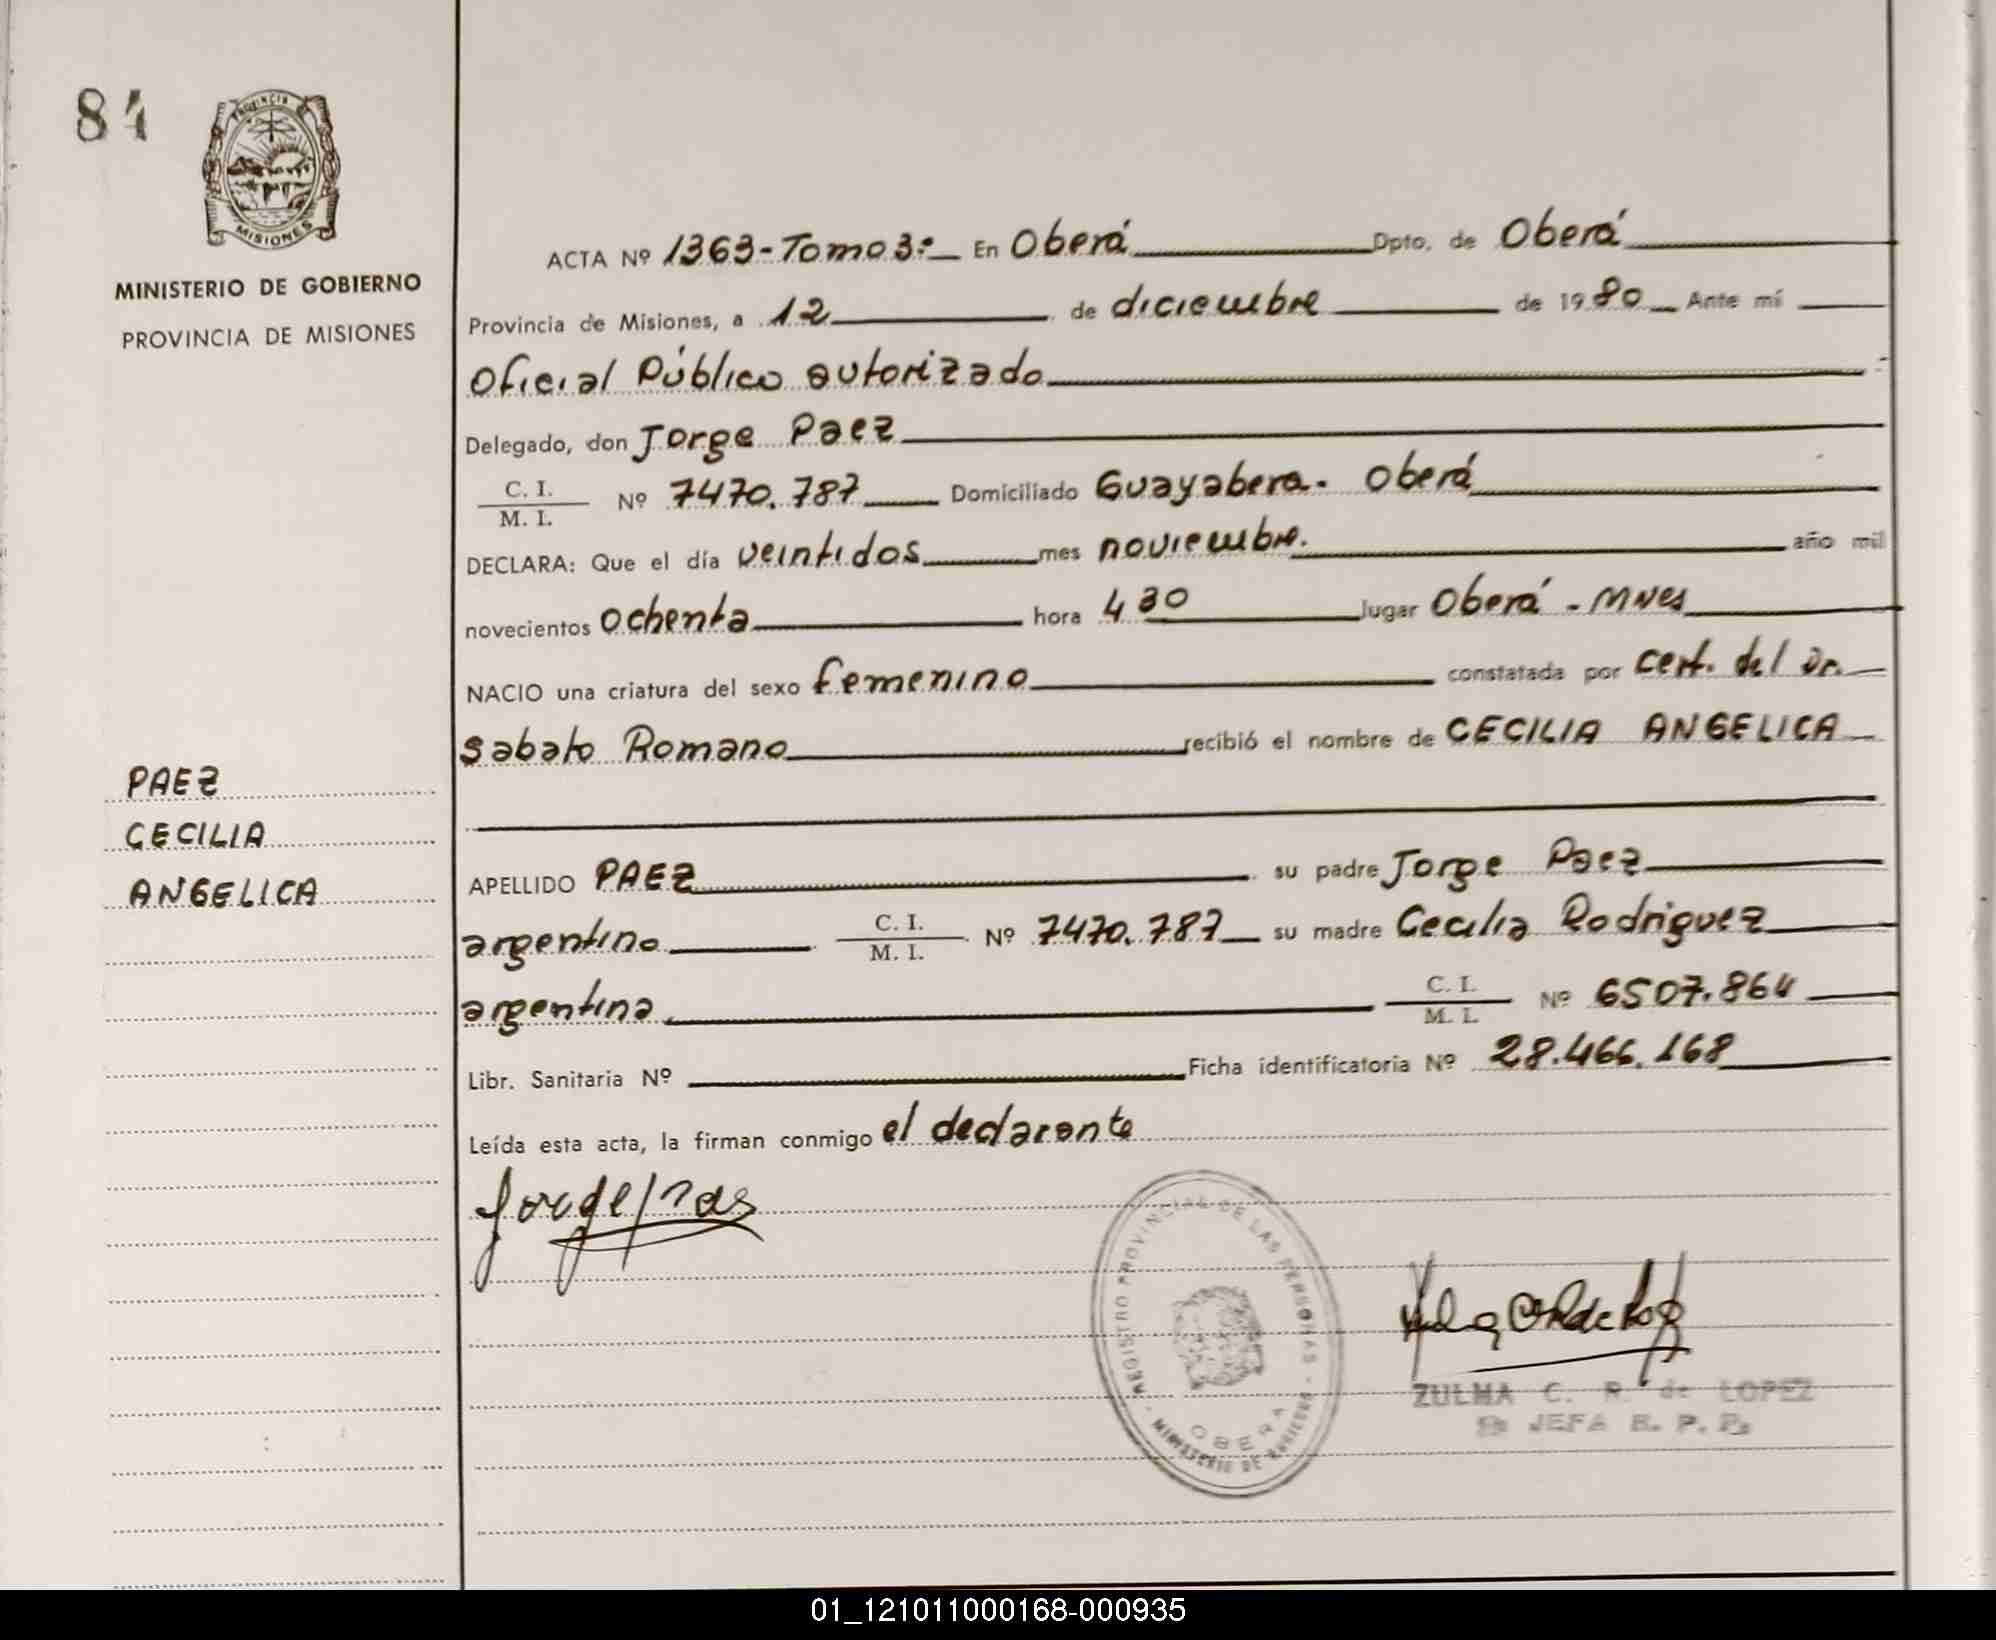 84
PROVINCIA DE
MISIONES
MINISTERIO DE GOBIERNO
PROVINCIA DE MISIONES
PAEZ
CECILIA
ANGELICA
ACTA Nº 1363-Tomo 3º En Oberá Dpto. de Oberá
Provincia de Misiones, a 12 de diciembre de 1980 Ante mí
Oficial Público autorizado
Delegado, don Jorge Paez
C. I. / M. I. Nº 7470.787 Domiciliado Guayabera. Oberá
DECLARA: Que el día veintidos mes noviembre. año mil
novecientos ochenta hora 4 30 lugar Oberá - Mnes
NACIO una criatura del sexo femenino constatada por cert. del Dr.
Sabato Romano recibió el nombre de CECILIA ANGELICA
APELLIDO PAEZ su padre Jorge Paez
argentino C. I. / M. I. Nº 7470.787 su madre Cecilia Rodriguez
argentina. C. I. / M. I. Nº 6507.864
Libr. Sanitaria Nº Ficha identificatoria Nº 28.466.168
Leída esta acta, la firman conmigo el declarante
REGISTRO PROVINCIAL DE LAS PERSONAS - MINISTERIO DE GOBIERNO -
OBERA
ZULMA C. R. de LOPEZ
JEFA R. P. P.
01_121011000168-000935